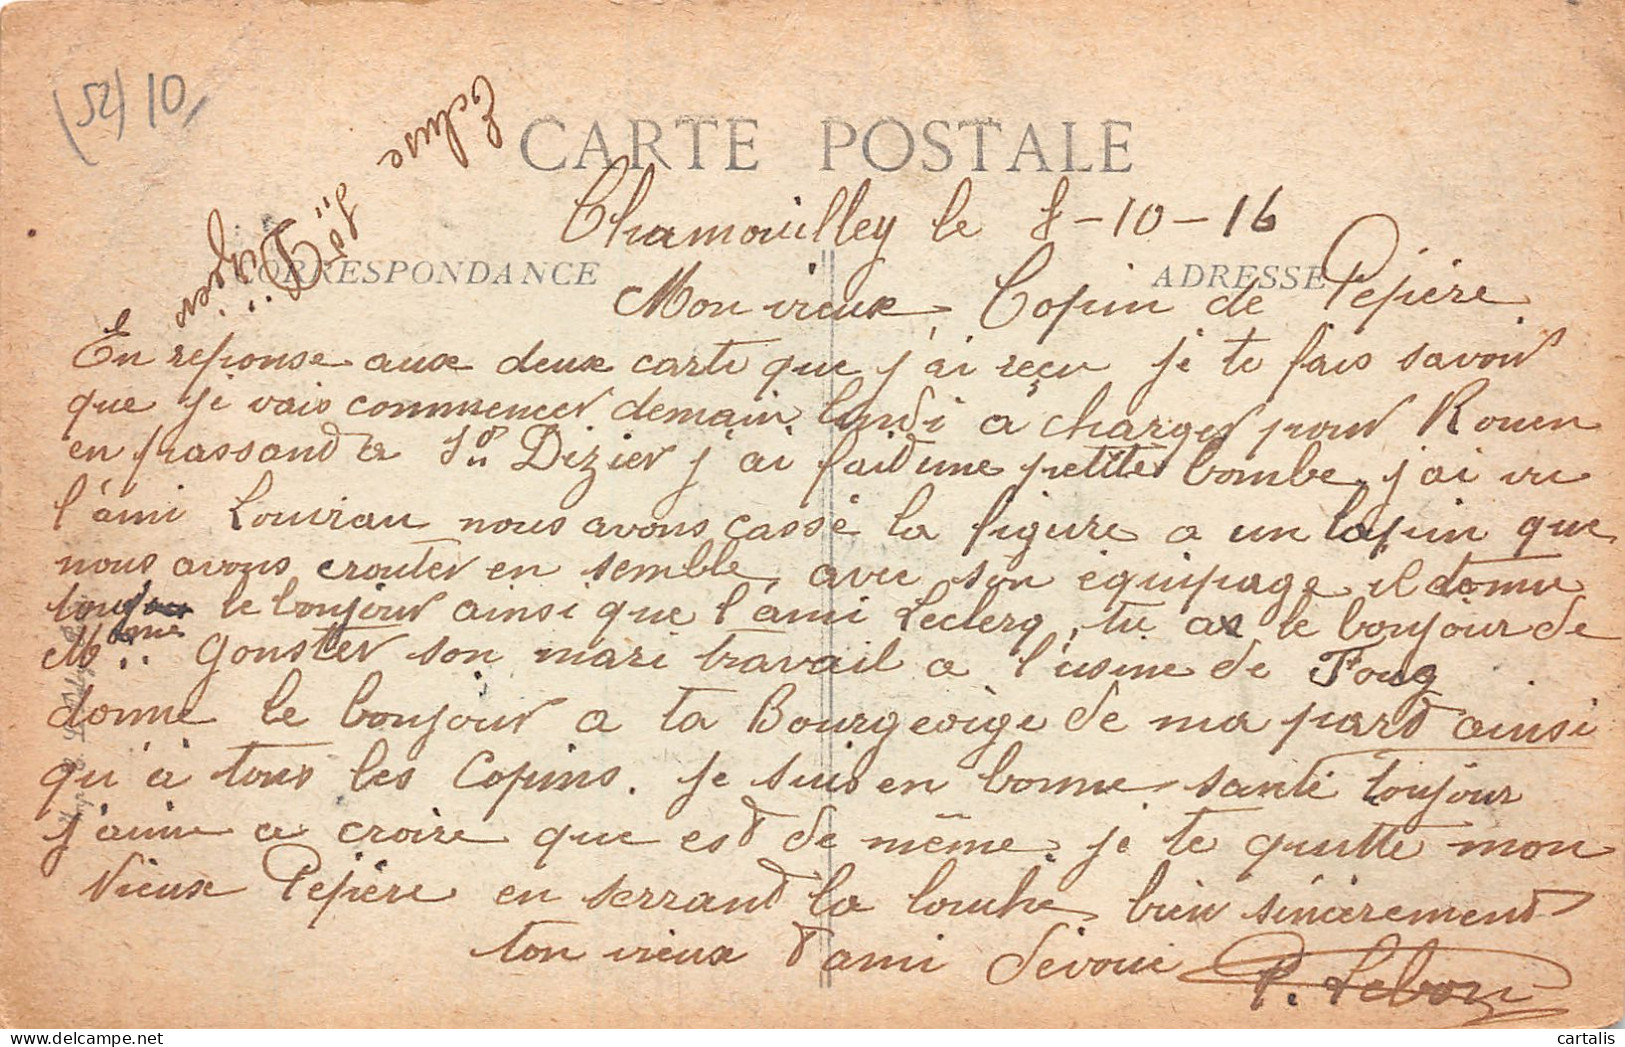 (52) 10
Ecluse
St Dizier
CARTE POSTALE
Chamouilley le 8-10-16
CORRESPONDANCE
ADRESSE
Mon vieux Copin de Pépère
En reponse aux deux carte que j'ai reçu je te fais savoir
que je vais commencer demain lundi a charger pour Rouen
en passand a St Dizier j'ai faid une petiter bombe, j'ai vu
l'ami Louviau nous avons cassé la figure a un lapin que
nous avons crouter en semble, avec son équipage il donne
le bonjour ainsi que l'ami Leclerq, tu as le bonjour de
Mme Gonster son mari travail a l'usine de Foug
donne le bonjour a ta Bourgeoige de ma pard ainsi
qu'à tous les Copins. Je suis en bonne santé toujour
j'aime a croire que esd de même, je te quitte mon
Vieux Pépère en serrand la louche bien sincèremend
ton vieux d'ami dévoué P. Lebon
cartalis